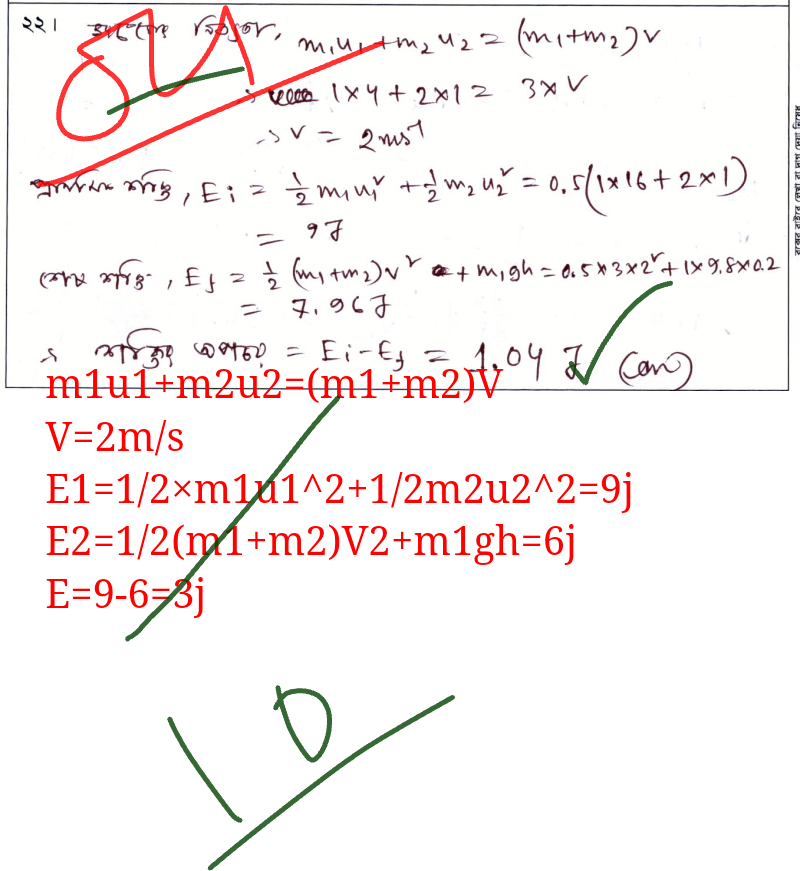 ২২। ভরবেগের নিত্যতা, m₁u₁+m₂u₂ = (m₁+m₂)v
1×4 + 2×1 = 3×v
∴ v = 2ms⁻¹
প্রাথমিক শক্তি, Ei = ½ m₁u₁² + ½ m₂u₂² = 0.5(1×16 + 2×1)
= 9J
শেষ শক্তি, Ef = ½ (m₁+m₂)v² + m₁gh = 0.5×3×2² + 1×9.8×0.2
= 7.96J
∴ শক্তির অপচয় = Ei-Ef = 1.04 J (an)
m1u1+m2u2=(m1+m2)V
V=2m/s
E1=1/2×m1u1^2+1/2m2u2^2=9j
E2=1/2(m1+m2)V2+m1gh=6j
E=9-6=3j
10